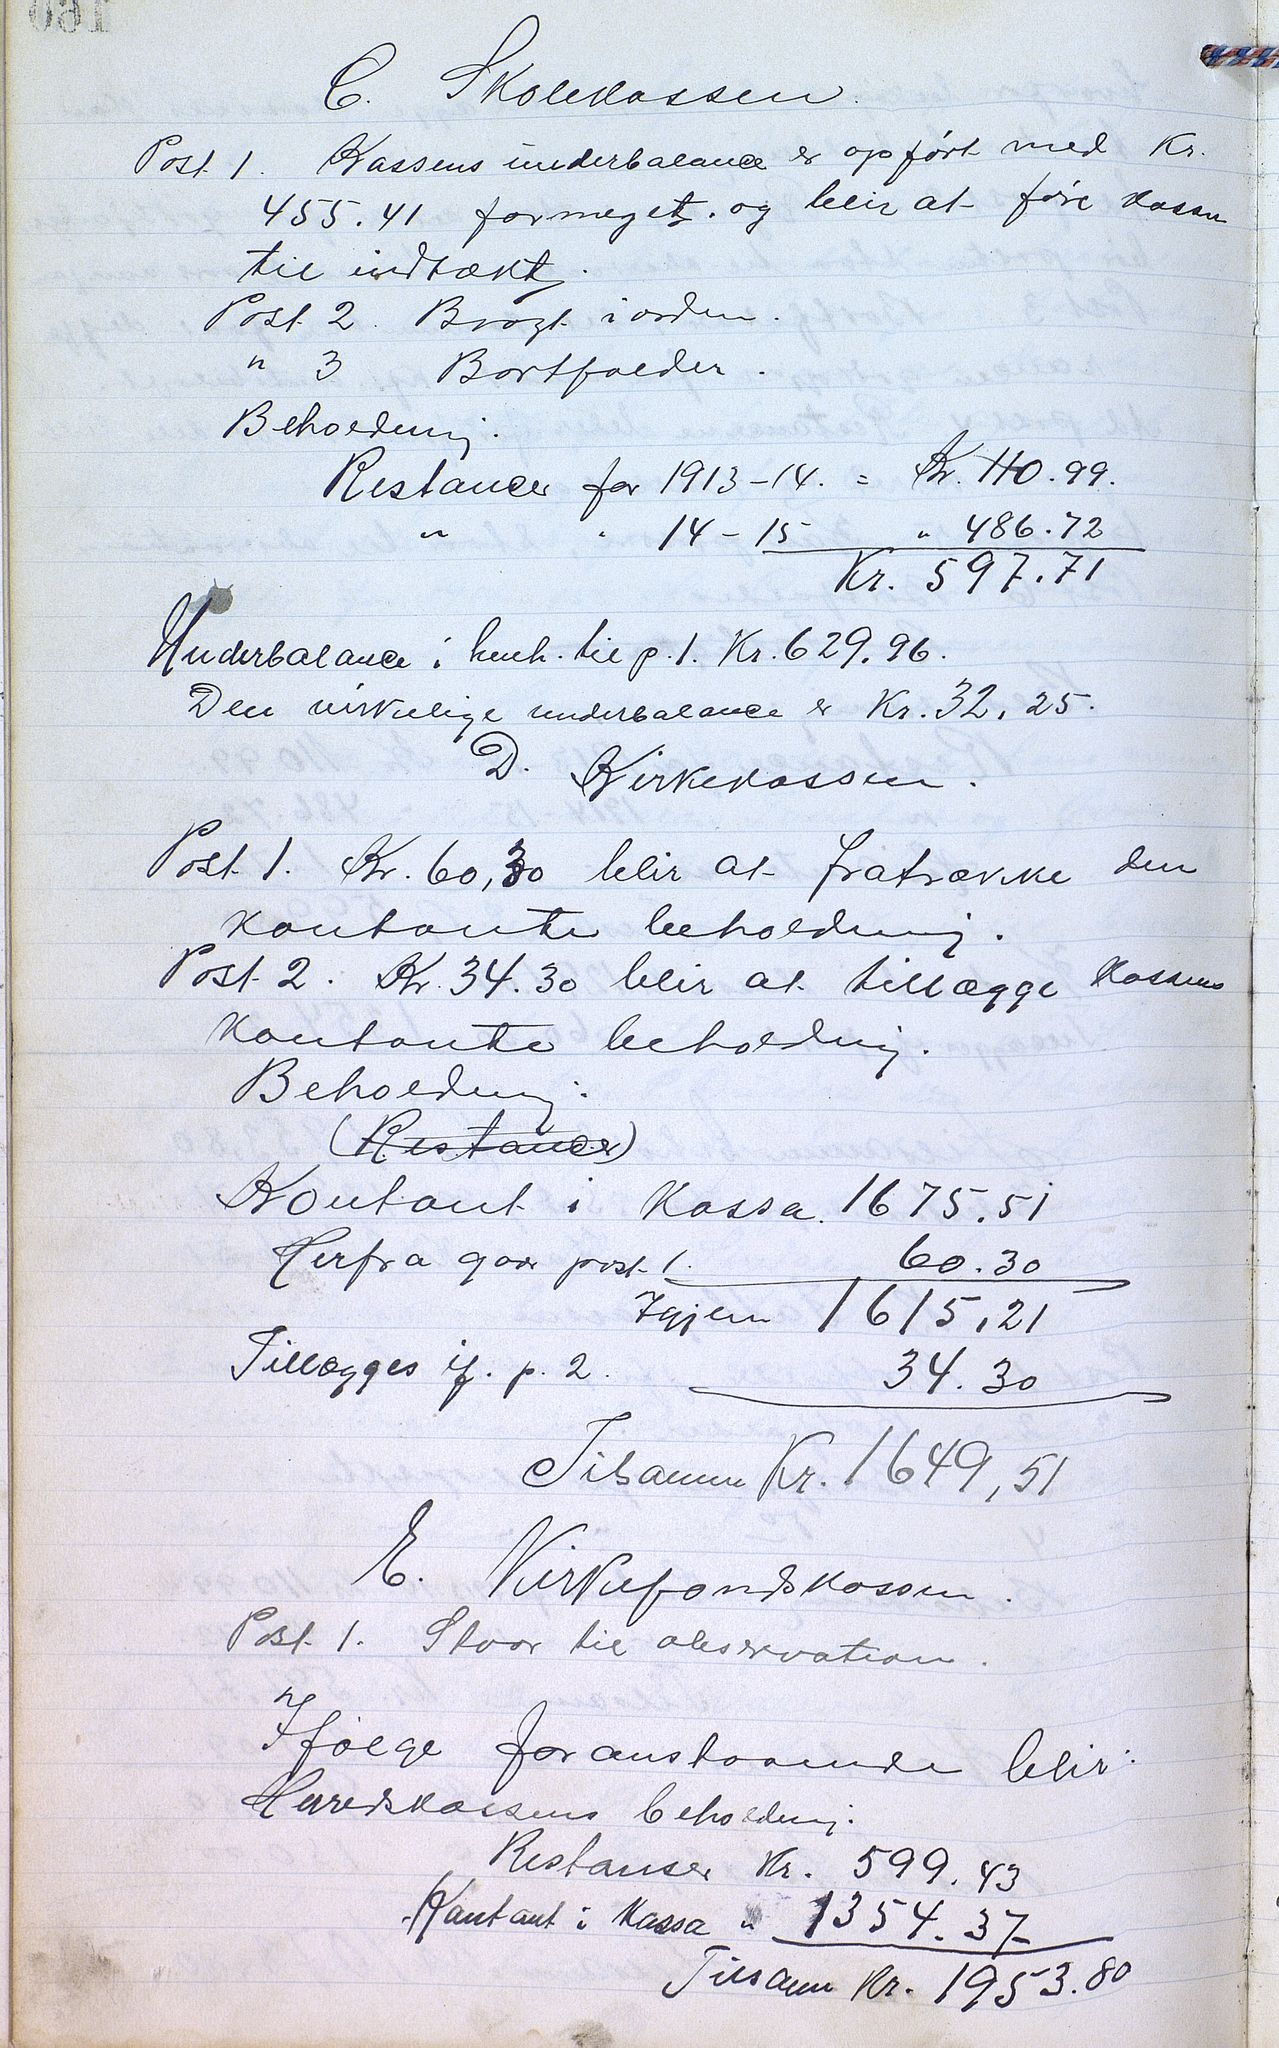 C. Skolekassen.
Post 1. Kassens underbalance er opført med Kr.
455.41 formeget. og blir at føre kassen
til indtækt.
Post 2. Bragt i orden.
" 3 Bortfalder.
Beholdning.
Restancer for 1913-14. = Kr. 110.99.
" " 14-15 " 486.72
Kr. 597.71
Underbalance i henh. til p. 1. Kr. 629.96.
Den virkelige underbalance er Kr. 32,25.
D. Kirkekassen.
Post 1. Kr. 60,30 blir at fratrække den
kontante beholdning.
Post 2. Kr. 34.30 blir at tillægge kassens
kontante beholdning.
Beholdning:
(Restancer)
Kontant i kassa. 1675.51
Herfra gaar post 1. 60.30
Igjen 1615,21
Tillægges if. p. 2. 34.30
Tilsamm Kr. 1649,51
E. Kirkefondskassen.
Post 1. Staar til observation.
Ifølge foranstaaende blir:
Herredskassens beholdning.
Restanser Kr. 599.43
Kantant i kassa " 1354.37
Tilsam Kr. 1953.80